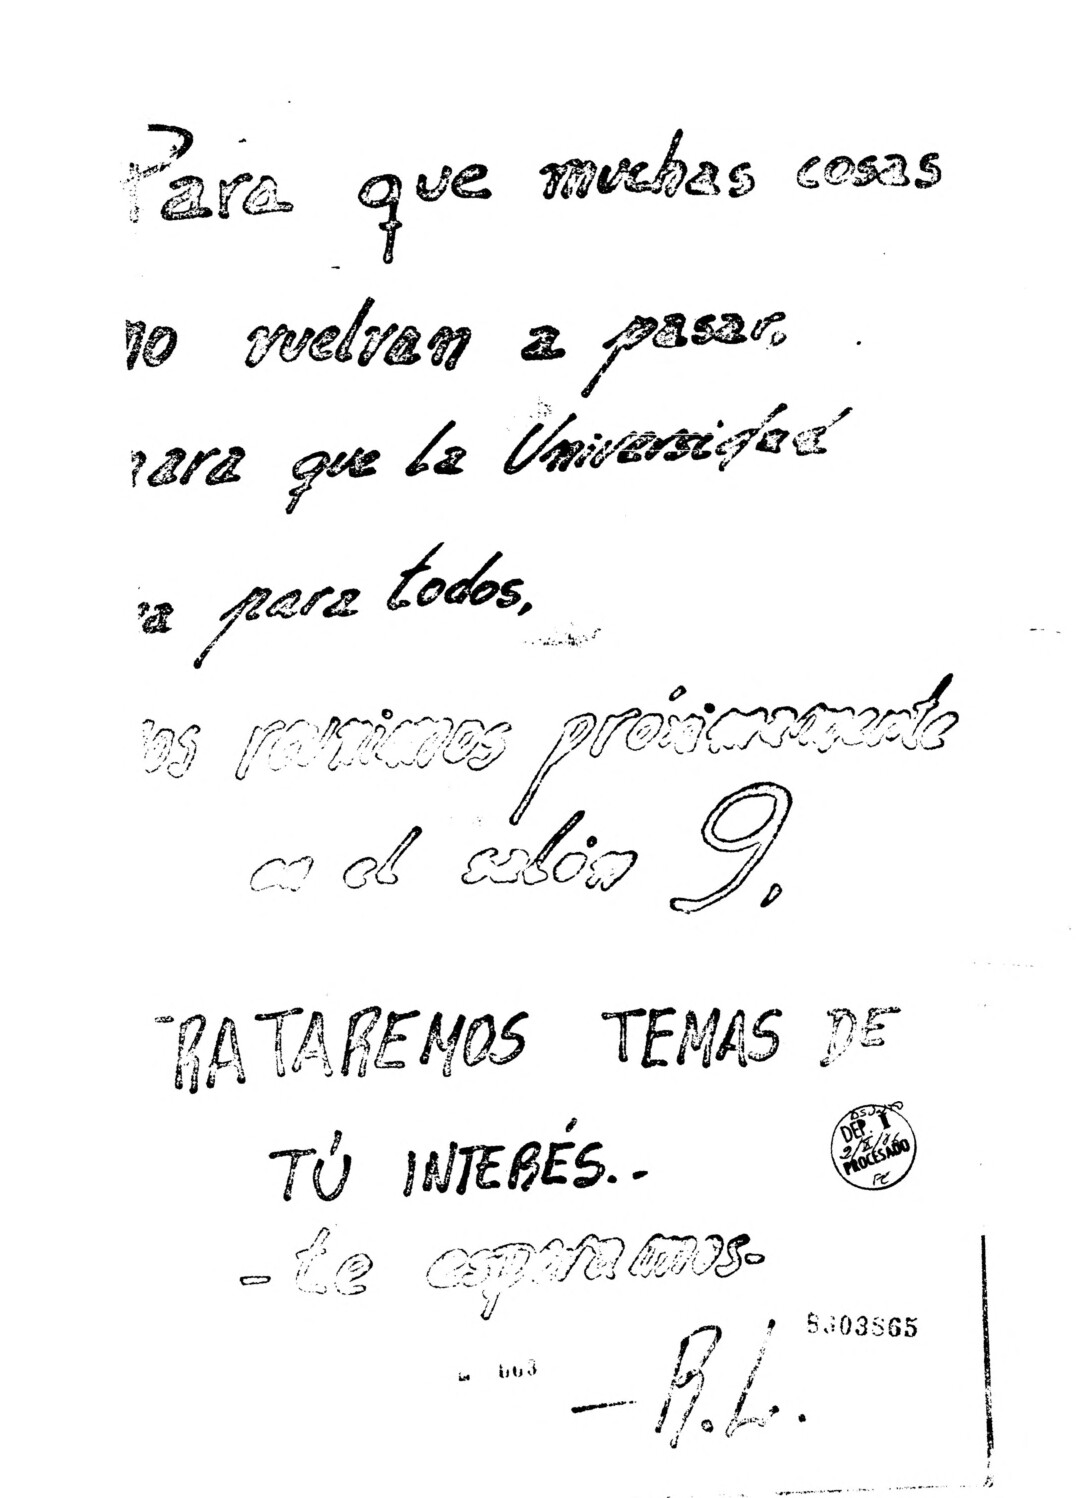 Para que muchas cosas
no vuelvan a pasar,
para que la Universidad
para todos,
nos reunimos próximamente
en el salón 9.
TRATAREMOS TEMAS DE
TÚ INTERÉS.-
DEP. I
PROCESADO
- te esperamos-
- R.L.